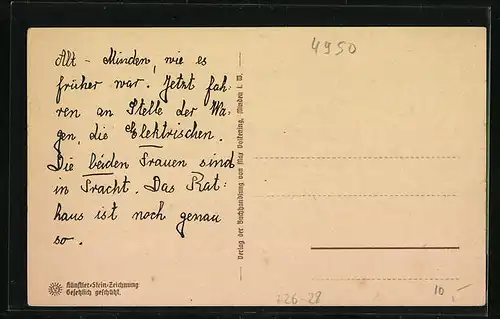 Alt - Minden, wie es
früher war. Jetzt fah-
ren an Stelle der Wa-
gen, die Elektrischen.
Die beiden Frauen sind
in Tracht. Das Rat-
haus ist noch genau
so.
Künstler-Stein-Zeichnung
Gesetzlich geschützt.
Verlag der Buchhandlung von Max Volkening, Minden i. W.
4950
726-28
10,-